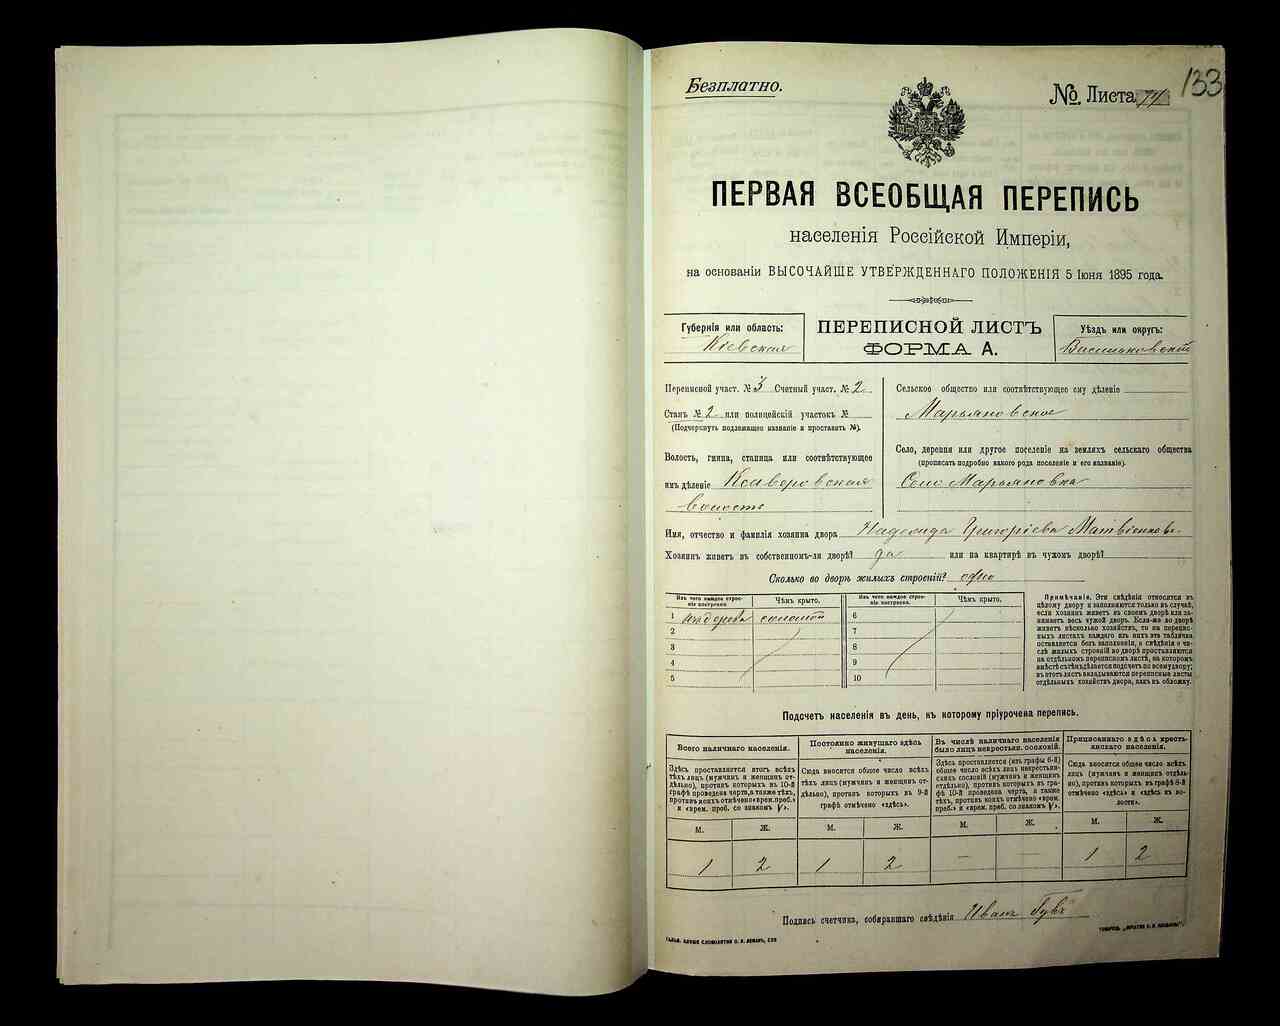 Безплатно.
№ Листа 74
133
ПЕРВАЯ ВСЕОБЩАЯ ПЕРЕПИСЬ
населенія Россійской Имперіи,
на основаніи ВЫСОЧАЙШЕ УТВЕРЖДЕННАГО ПОЛОЖЕНІЯ 5 Іюня 1895 года.
Губернія или область:
Кіевская
ПЕРЕПИСНОЙ ЛИСТЪ
ФОРМА А.
Уѣздъ или округъ:
Васильковскій
Переписной участ. № 3 Счетный участ. № 2
Станъ № 2 или полицейскій участокъ №
(Подчеркнуть подлежащее названіе и проставить №).
Волость, гмина, станица или соотвѣтствующее
имъ дѣленіе Ксаверовская
волость
Сельское общество или соотвѣтствующее ему дѣленіе
Марьяновское
Село, деревня или другое поселеніе на земляхъ сельскаго общества
(прописать подробно какого рода поселеніе и его названіе).
Село Марьяновка
Имя, отчество и фамилія хозяина двора Надежда Григоріева Матвіенкова
Хозяинъ живетъ въ собственномъ-ли дворѣ? да или на квартирѣ въ чужомъ дворѣ?
Сколько во дворѣ жилыхъ строеній? одно
Изъ чего каждое строеніе построено.
Чѣмъ крыто.
Изъ чего каждое строеніе построено.
Чѣмъ крыто.
1 изъ дерева соломой
2
3
4
5
6
7
8
9
10
Примѣчаніе. Эти свѣдѣнія относятся къ
цѣлому двору и заполняются только въ случаѣ,
если хозяинъ живетъ въ своемъ дворѣ или занимаетъ
весь чужой дворъ. Если-же во дворѣ
живетъ нѣсколько хозяйствъ, то на переписныхъ
листахъ каждаго изъ нихъ эта табличка
оставляется безъ заполненія, а свѣдѣнія о числѣ
жилыхъ строеній во дворѣ проставляются
на отдѣльномъ переписномъ листѣ, на которомъ
вмѣстѣ съ тѣмъ дѣлается подсчетъ по всему двору;
въ этотъ листъ вкладываются переписные листы
отдѣльныхъ хозяйствъ двора, какъ въ обложку.
Подсчетъ населенія въ день, къ которому пріурочена перепись.
Всего наличнаго населенія.
Здѣсь проставляется итогъ всѣхъ
тѣхъ лицъ (мужчинъ и женщинъ отдѣльно),
противъ которыхъ въ 10-й
графѣ проведена черта, а также тѣхъ,
противъ коихъ отмѣчено «врем. преб.»
и «врем. преб. со знакомъ V».
Постоянно живущаго здѣсь
населенія.
Сюда вносится общее число всѣхъ
тѣхъ лицъ (мужчинъ и женщинъ отдѣльно),
противъ которыхъ въ 9-й
графѣ отмѣчено «здѣсь».
Въ числѣ наличнаго населенія
было лицъ некрестьян. сословій.
Здѣсь проставляется (изъ графы 6-й)
общее число всѣхъ лицъ некрестьянскихъ
сословій (мужчинъ и женщинъ
отдѣльно), противъ которыхъ въ графѣ
10-й проведена черта, а также
тѣхъ, противъ коихъ отмѣчено «врем.
преб.» и «врем. преб. со знакомъ V».
Приписаннаго здѣсь крестьянскаго
населенія.
Сюда вносится общее число всѣхъ
лицъ (мужчинъ и женщинъ отдѣльно),
противъ которыхъ въ графѣ 8-й
отмѣчено «здѣсь» и «здѣсь въ волости».
М. Ж. М. Ж. М. Ж. М. Ж.
1 2 1 2 — — 1 2
Подпись счетчика, собиравшаго свѣдѣнія Иванъ